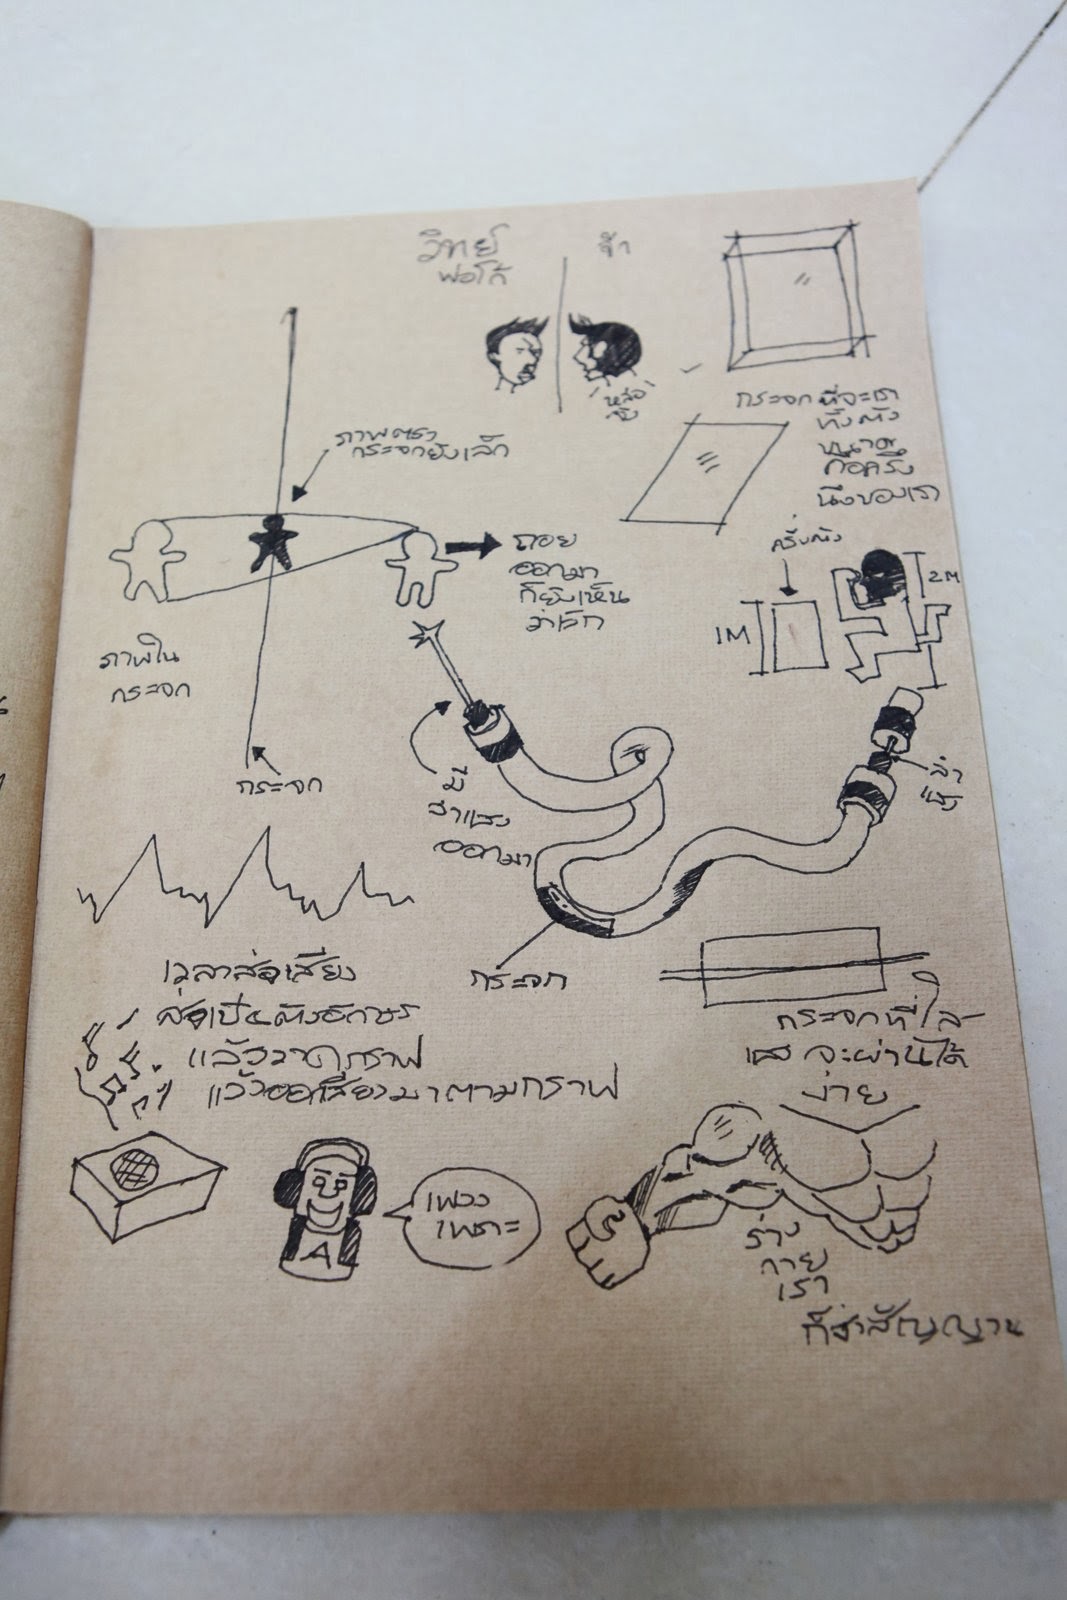 วิทย์
พ่อโก้
จ้า
หล่อ
จัง
กระจกที่จะเรา
ทั้งตัว
ขนาด
คือครึ่ง
นึงของเรา
ภาพตรง
กระจกยังเล็ก
ถอย
ออกมา
ก็ยังเห็น
ว่าเล็ก
ครึ่งตัว
2M
1M
ภาพใน
กระจก
กระจก
มี
ลำแสง
ออกมา
ลำ
แสง
กระจก
กระจกที่ใส
แสงจะผ่านได้
ง่าย
เวลาส่งเสียง
ส่งเป็นตัวอักษร
แล้ววาดกราฟ
แล้วออกเสียงมาตามกราฟ
เพลง
เพราะ
A
ร่าง
กาย
เรา
ก็ส่งสัญญาน